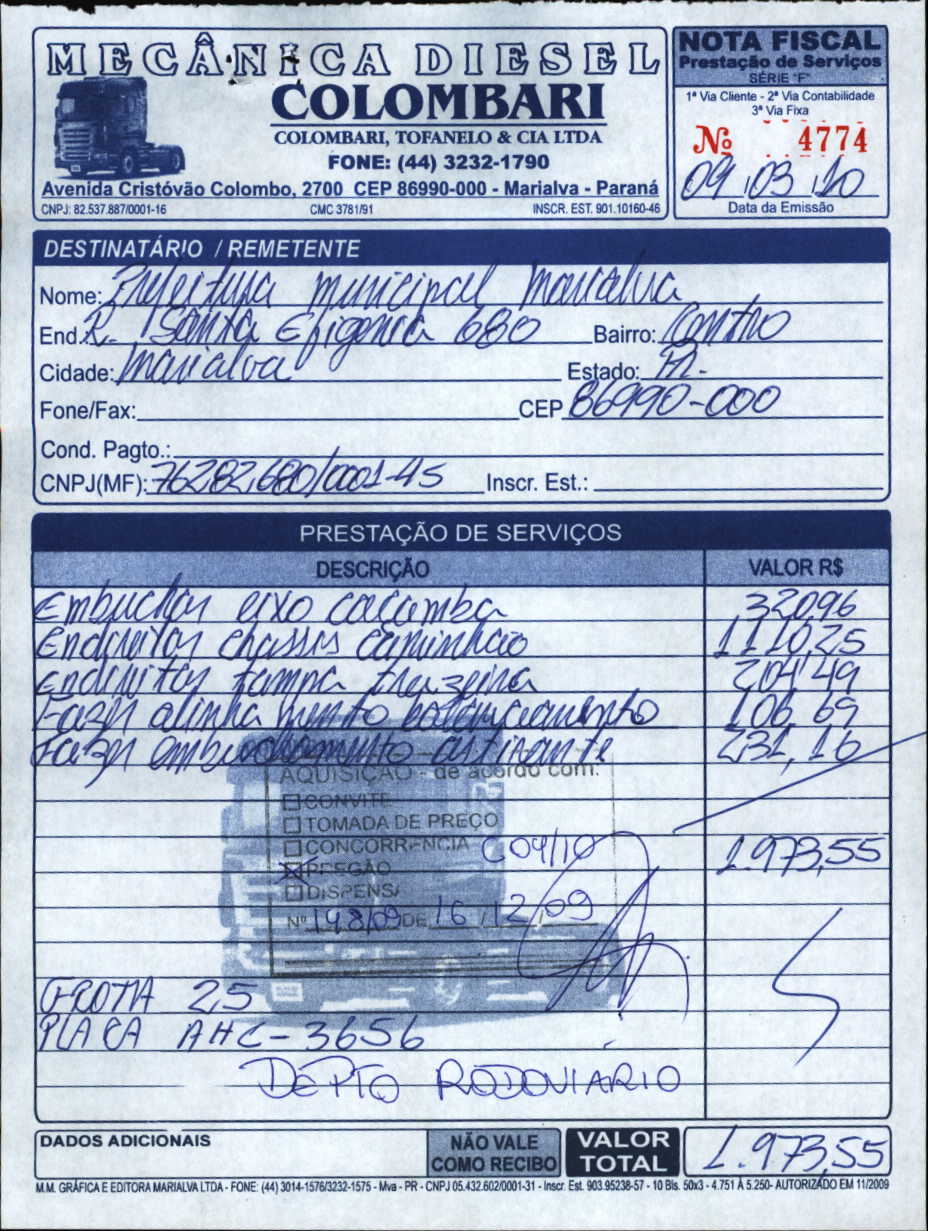 MECÂNICA DIESEL
COLOMBARI
COLOMBARI, TOFANELO & CIA LTDA
FONE: (44) 3232-1790
Avenida Cristóvão Colombo, 2700 CEP 86990-000 - Marialva - Paraná
CNPJ: 82.537.887/0001-16 CMC 3781/91 INSCR. EST. 901.10160-46
NOTA FISCAL
Prestação de Serviços
SÉRIE "F"
1ª Via Cliente - 2ª Via Contabilidade
3ª Via Fixa
Nº 4774
09 03 10
Data da Emissão
DESTINATÁRIO / REMETENTE
Nome: Prefeitura municipal marialva
End. R. Santa Efigenia 680 Bairro: Centro
Cidade: Marialva Estado: PR-
Fone/Fax: CEP 86990-000
Cond. Pagto.:
CNPJ(MF): 76282680/0001-45 Inscr. Est.:
PRESTAÇÃO DE SERVIÇOS
DESCRIÇÃO VALOR R$
Embuchar eixo caçamba 320,96
Endireitar chassis caminhão 1110,25
Endireitar tampa trazeira 204,49
Fazer alinhamento balanceamento 106,69
Fazer embuchamento estirante 231,16
AQUISIÇÃO - de acordo com:
CONVITE
TOMADA DE PREÇO
CONCORRENCIA C04/10 1.973,55
PREGÃO
DISPENSA
Nº 148/09 DE 16 / 12 / 09
FROTA 25
PLACA AHC-3656
DEPTO RODOVIARIO
DADOS ADICIONAIS
NÃO VALE
COMO RECIBO
VALOR
TOTAL
1.973,55
M.M. GRÁFICA E EDITORA MARIALVA LTDA - FONE: (44) 3014-1576/3232-1575 - Mva - PR - CNPJ 05.432.602/0001-31 - Inscr. Est. 903.95238-57 - 10 Bls. 50x3 - 4.751 À 5.250- AUTORIZADO EM 11/2009